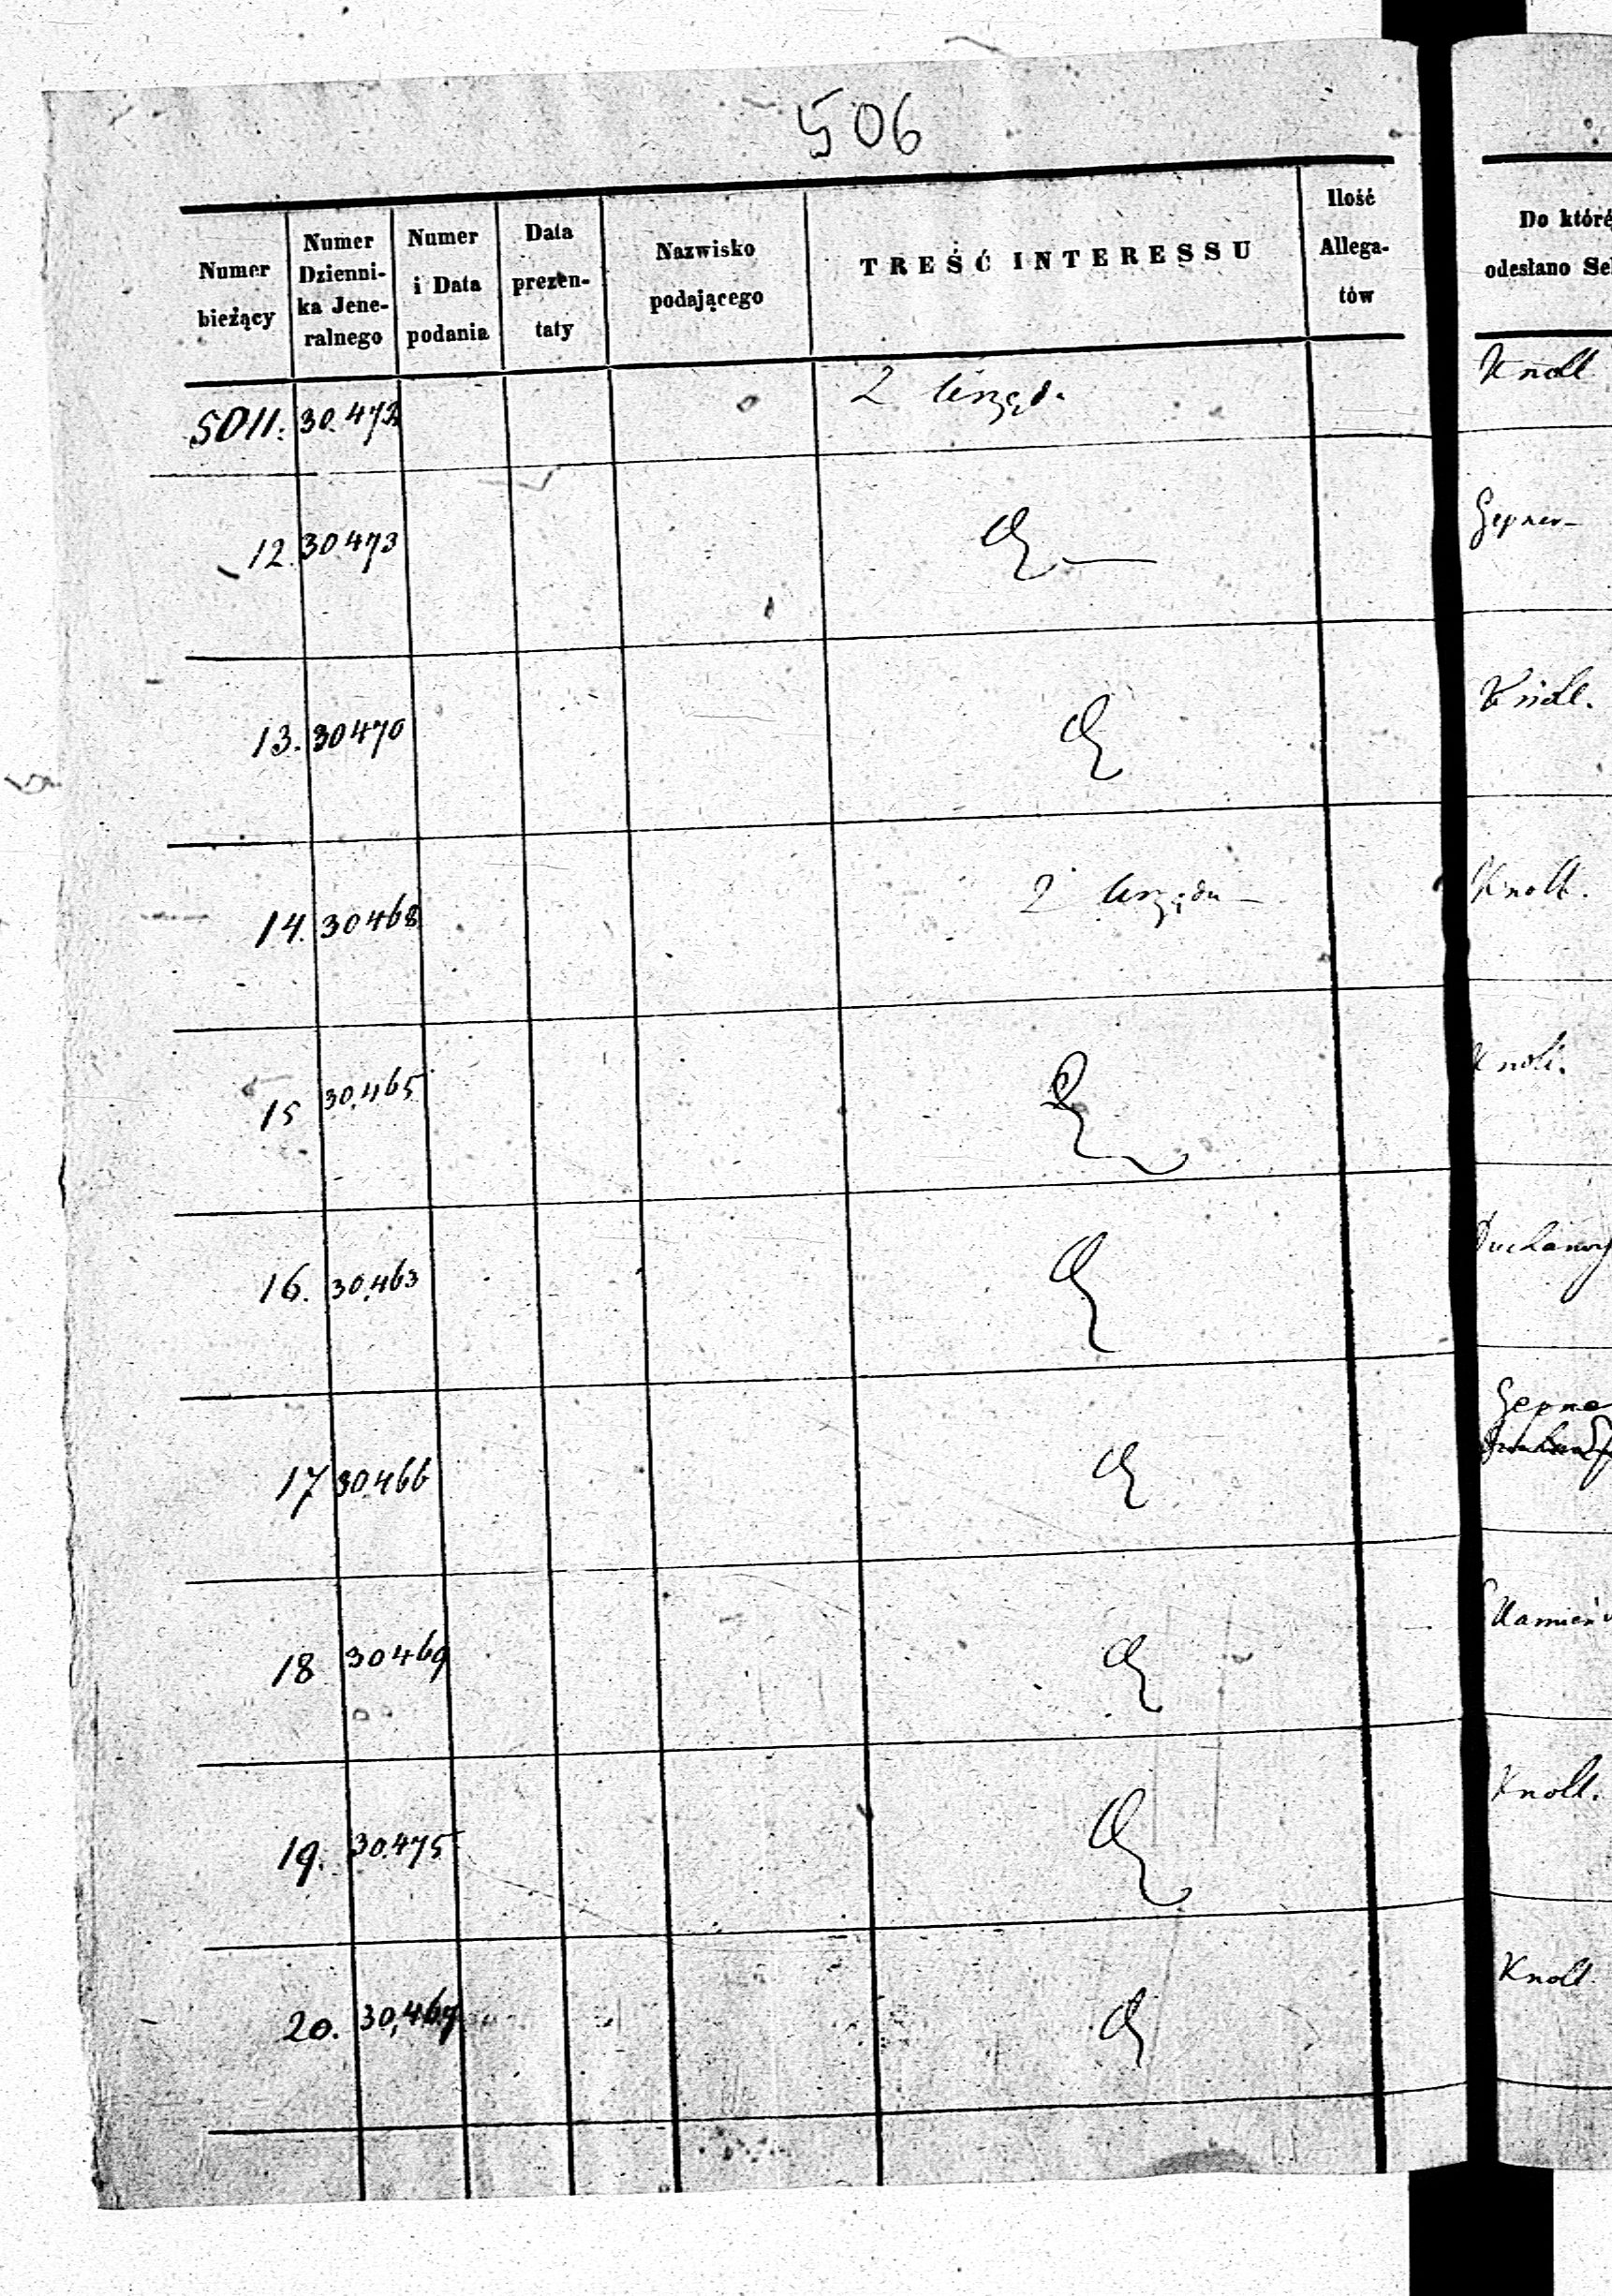 506
Numer bieżący
Numer Dzienni-
ka Jene-
ralnego
Numer i Data podania
Data prezen-
taty
Nazwisko podającego
TREŚĆ INTERESSU
Ilość Allega-
tów
Do któré
odesłano Se
5011. 30.472 Z Urzędu Knoll
12. 30473 Gepner
13. 30470 Knoll.
14. 30468 Z Urzędu Knoll.
15 30,465 Knoll.
16. 30,463
17 30466 Gepne
18 30469
19. 30.475 Knoll.
20. 30,467 Knoll